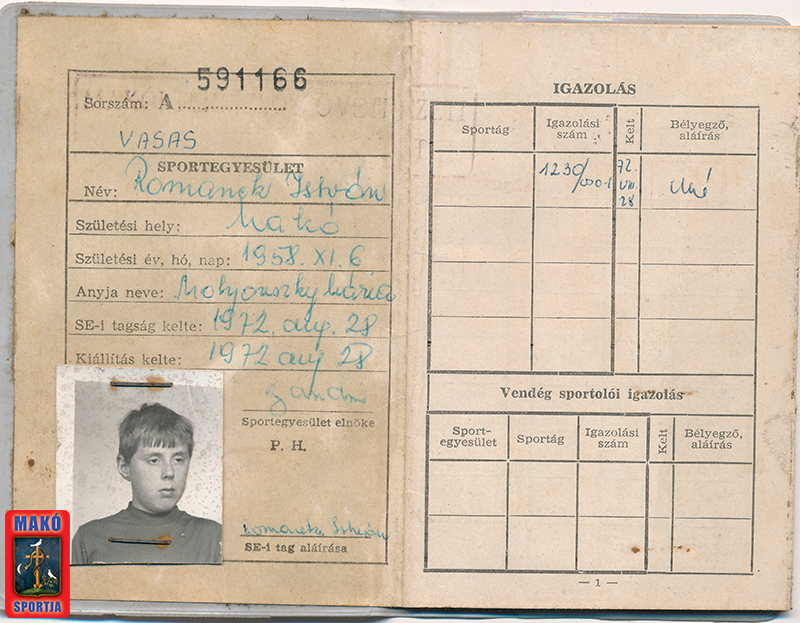 591166
Sorszám: A
VASAS
SPORTEGYESÜLET
Név: Romanek István
Születési hely: Makó
Születési év, hó, nap: 1958. XI. 6
Anyja neve: Mária
SE-i tagság kelte: 1972. aug. 28
Kiállítás kelte: 1972 aug 28
Sportegyesület elnöke
P. H.
Romanek István
SE-i tag aláírása
MAKÓ
SPORTJA
IGAZOLÁS
Sportág Igazolási szám Kelt Bélyegző, aláírás
1230/0001 72. VIII. 28
Vendég sportolói igazolás
Sport-egyesület Sportág Igazolási szám Kelt Bélyegző, aláírás
— 1 —